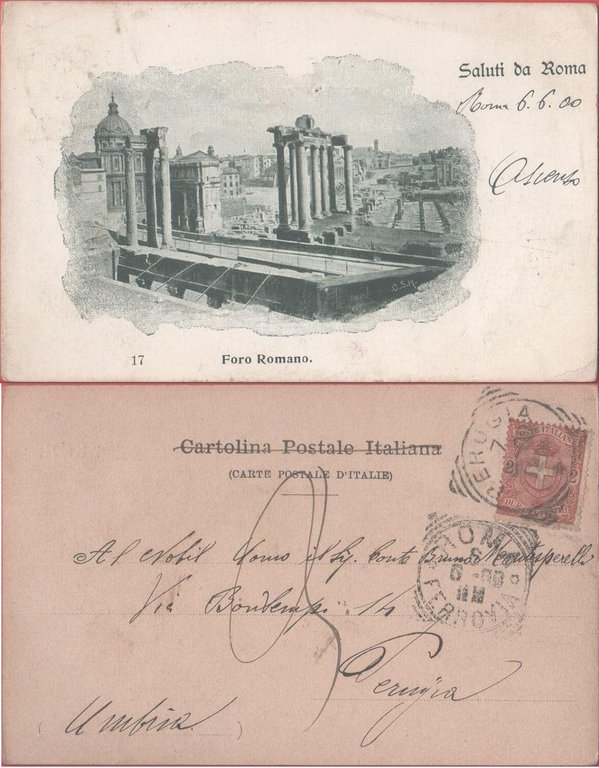 Saluti da Roma
Roma 6.6.00
C.S.M.
17 Foro Romano.
Cartolina Postale Italiana
(CARTE POSTALE D'ITALIE)
PERUGIA
7
2 2
ROMA
6 - 00
FERROVIA
Al Nobil Uomo il Sig. Conte
Via Bontempi 14
Perugia
(Umbria.)